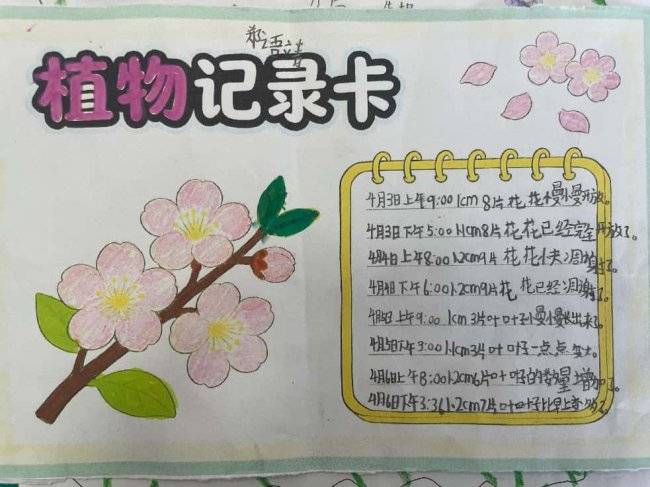 植物记录卡
4月3日上午9:00 1cm 8片花 花慢慢开放。
4月3日下午5:00 1cm 8片花 花已经完全开放了。
4月4日上午8:00 1.2cm 9片 花 花快凋谢了。
4月4日下午6:00 1.2cm 9片花 花已经凋谢了。
4月5日上午9:00 1cm 3片叶 叶子慢慢长出来了。
4月5日下午3:00 1.1cm 3片 叶子一点点变大。
4月6日上午8:00 1.2cm 6片叶 叶子的数量增加了。
4月6日下午3:36 1.2cm 7片叶 叶子比早上多了。